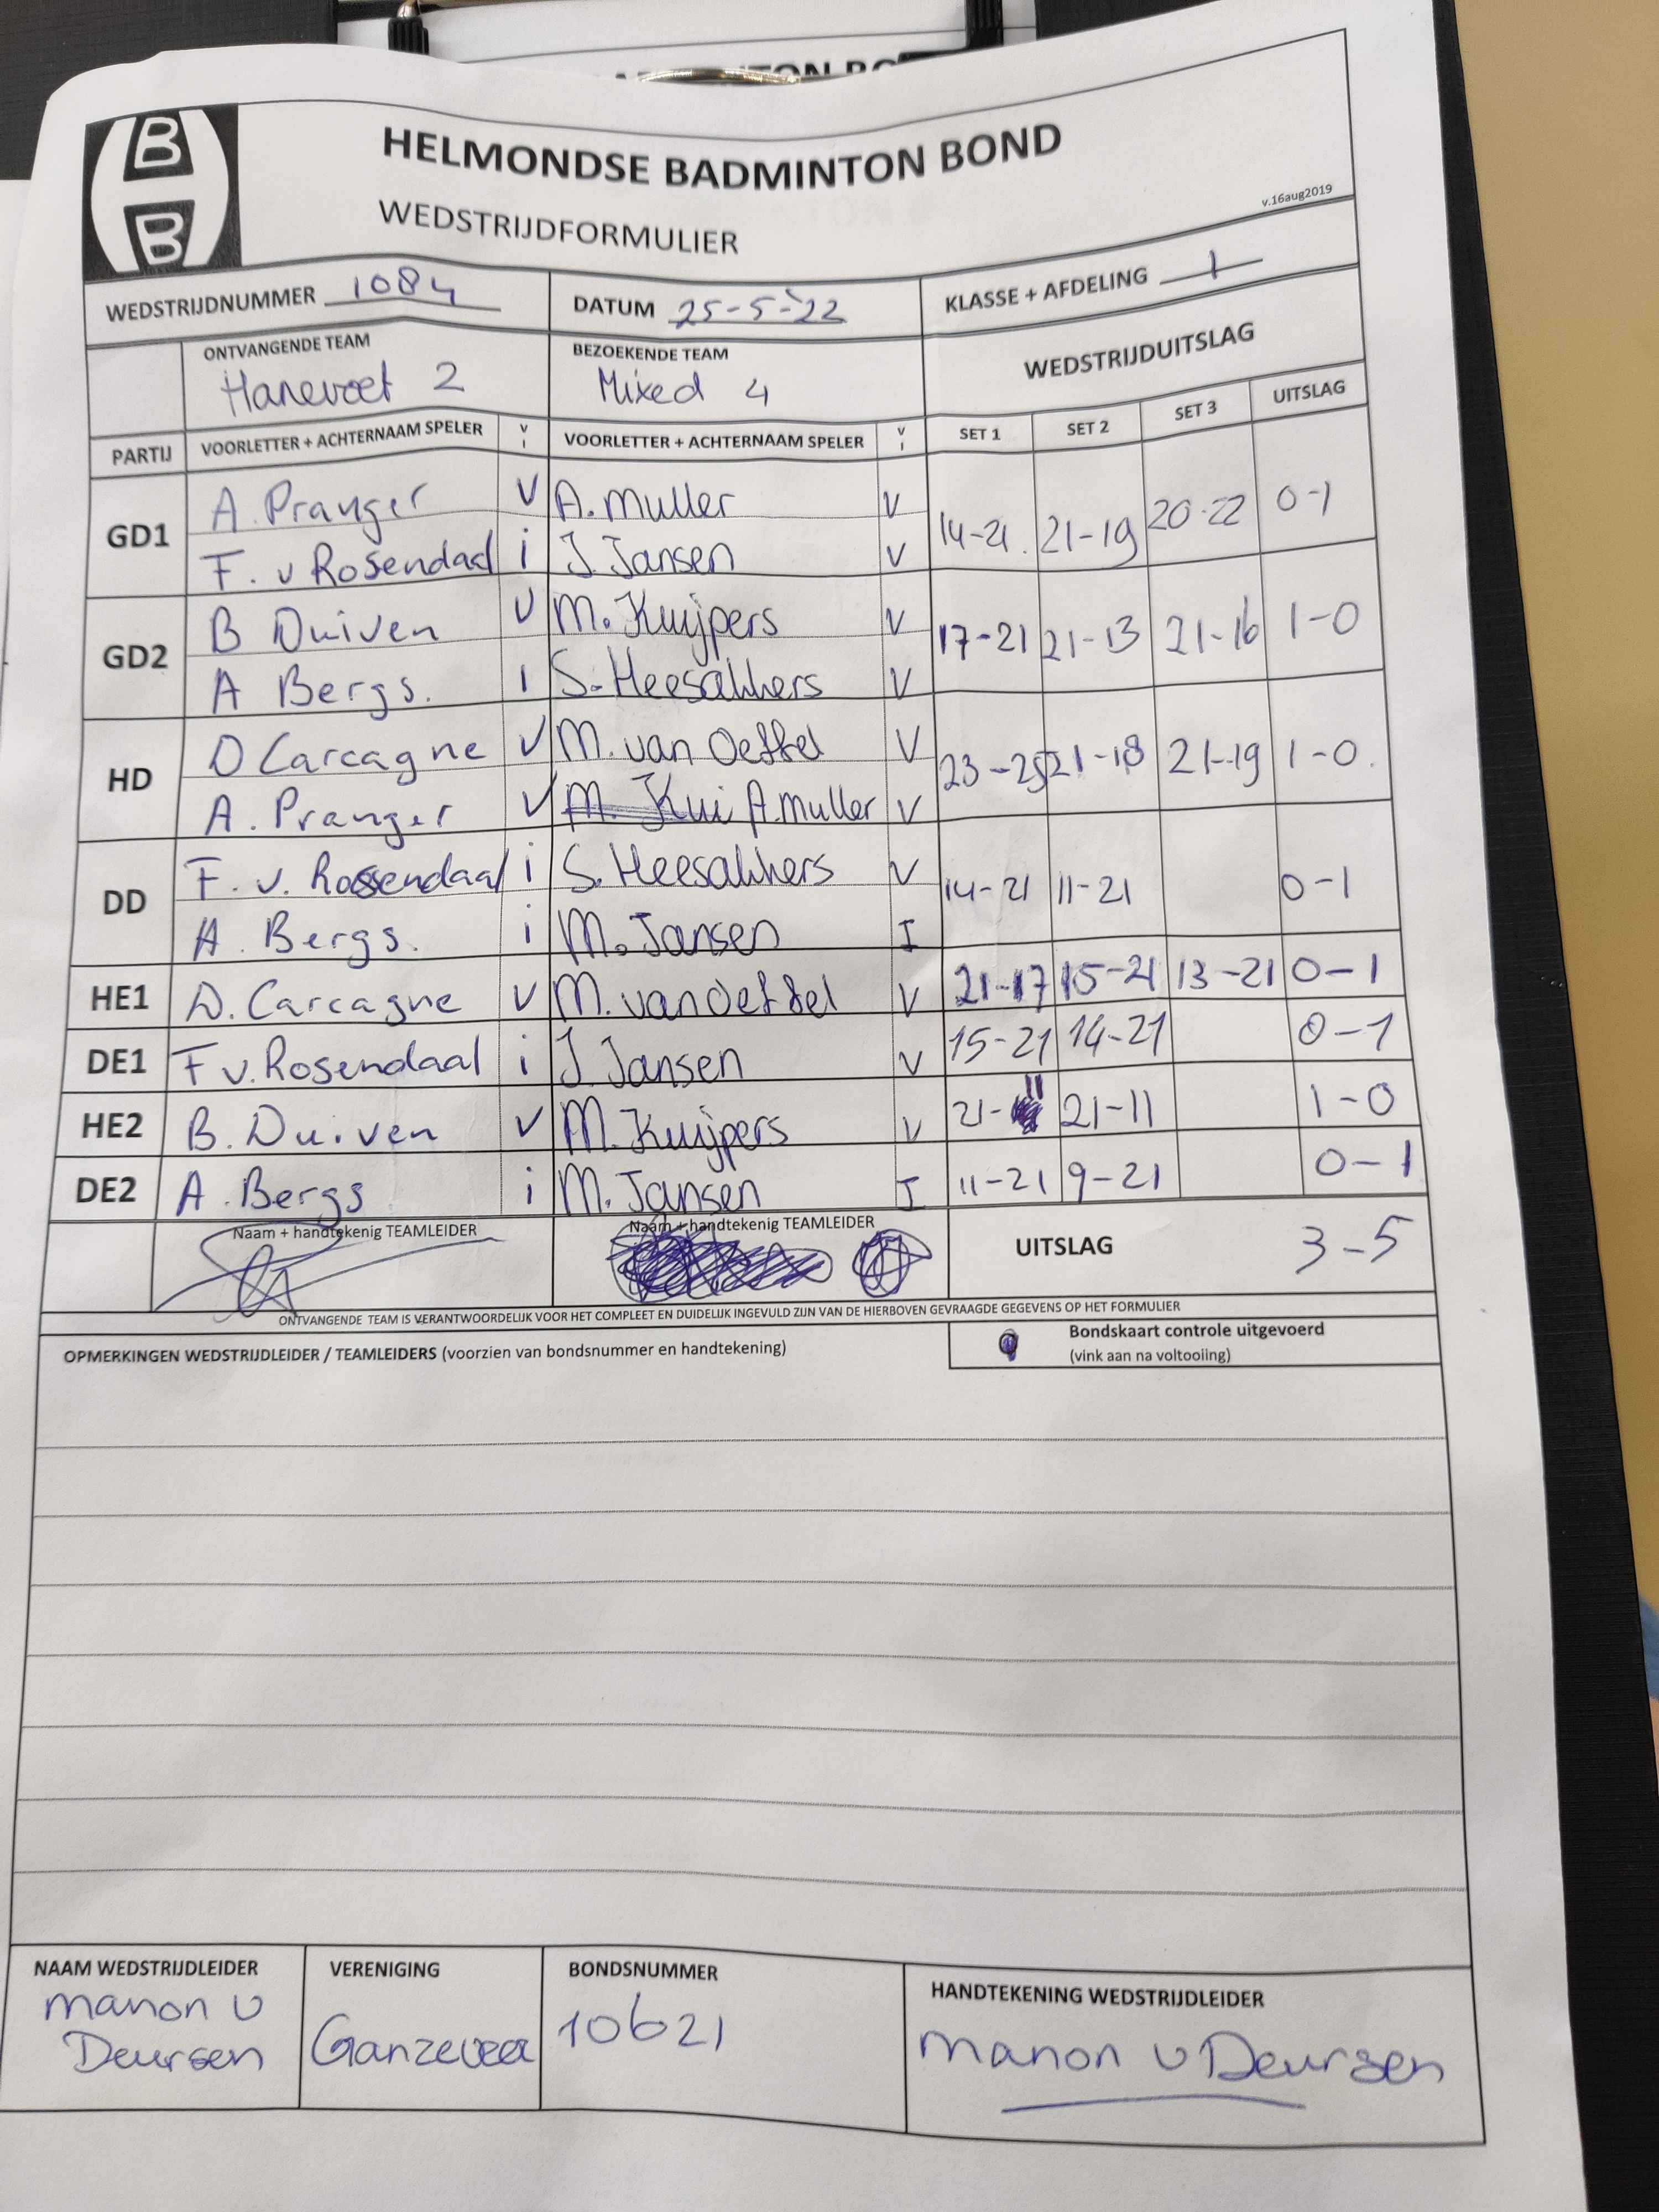 HELMONDSE BADMINTON BOND
WEDSTRIJDFORMULIER
v.16aug2019
WEDSTRIJDNUMMER 1084 DATUM 25-5-'22 KLASSE + AFDELING 1
ONTVANGENDE TEAM BEZOEKENDE TEAM WEDSTRIJDUITSLAG
Hanevoet 2 Mixed 4
PARTIJ VOORLETTER + ACHTERNAAM SPELER V I VOORLETTER + ACHTERNAAM SPELER V I SET 1 SET 2 SET 3 UITSLAG
GD1 A. Pranger V A. Muller V 14-21 21-19 20-22 0-1
F. v Rosendaal i J. Jansen V
GD2 B Duiven V M. Kuijpers V 17-21 21-13 21-16 1-0
A Bergs. I S. Heesakkers V
HD D Carcagne V M. van Oeffel V 23-25 21-18 21-19 1-0.
A. Pranger V M. Kui A. Muller V
DD F. v. Rossendaal i S. Heesakkers V 14-21 11-21 0-1
A. Bergs. i M. Jansen I
HE1 D. Carcagne V M. van Oeffel V 21-17 15-21 13-21 0-1
DE1 F v. Rosendaal i J. Jansen V 15-21 14-21 0-1
HE2 B. Duiven V M. Kuijpers V 21-11 21-11 1-0
DE2 A. Bergs i M. Jansen I 11-21 9-21 0-1
Naam + handtekenig TEAMLEIDER Naam + handtekenig TEAMLEIDER UITSLAG 3-5
ONTVANGENDE TEAM IS VERANTWOORDELIJK VOOR HET COMPLEET EN DUIDELIJK INGEVULD ZIJN VAN DE HIERBOVEN GEVRAAGDE GEGEVENS OP HET FORMULIER
OPMERKINGEN WEDSTRIJDLEIDER / TEAMLEIDERS (voorzien van bondsnummer en handtekening)
Bondskaart controle uitgevoerd
(vink aan na voltooiing)
NAAM WEDSTRIJDLEIDER VERENIGING BONDSNUMMER HANDTEKENING WEDSTRIJDLEIDER
Manon v
Deursen Ganzeveer 10621 Manon v Deursen